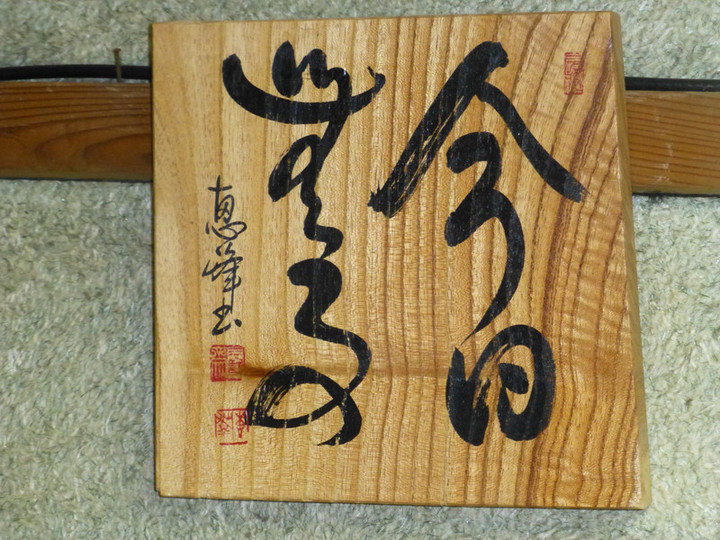 今日
無事
恵峰書